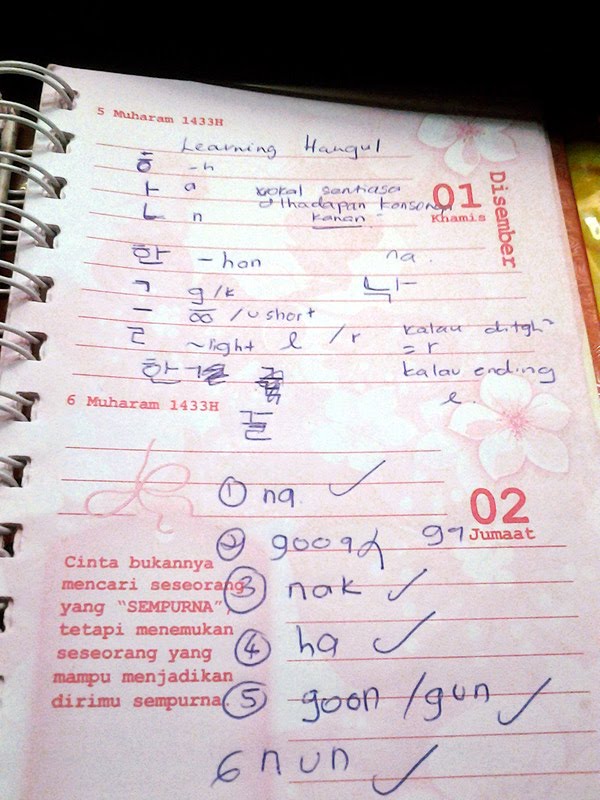 5 Muharam 1433H
Learning Hangul
ㅎ -h
ㅏ a vokal sentiasa
01
Disember
ㄴ n dihadapan konsonan
Khamis
kanan
한 - han na.
ㄱ g/k 나
ㅡ oo / u short
ㄹ ~light l / r kalau ditgh²
= r
한 ㄱ kalau ending
l.
6 Muharam 1433H
글
① na ✓
02
② goog g
Jumaat
③ nak ✓
④ ha ✓
⑤ goon / gun ✓
6 nun ✓
Cinta bukannya
mencari seseorang
yang "SEMPURNA",
tetapi menemukan
seseorang yang
mampu menjadikan
dirimu sempurna.